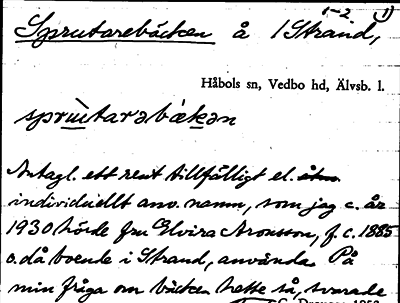 1-2 1)
Sprutarebäcken å 1 Strand,
Håbols sn, Vedbo hd, Älvsb. l.
sprùtarəbɛ̀kən
Antagl. ett rent tillfälligt el.
individuellt anv. namn, som jag c. år
1930 hörde fru Elvira Aronsson, f. c. 1885
o. då boende i Strand, använda. På
min fråga om bäcken hette så, svarade